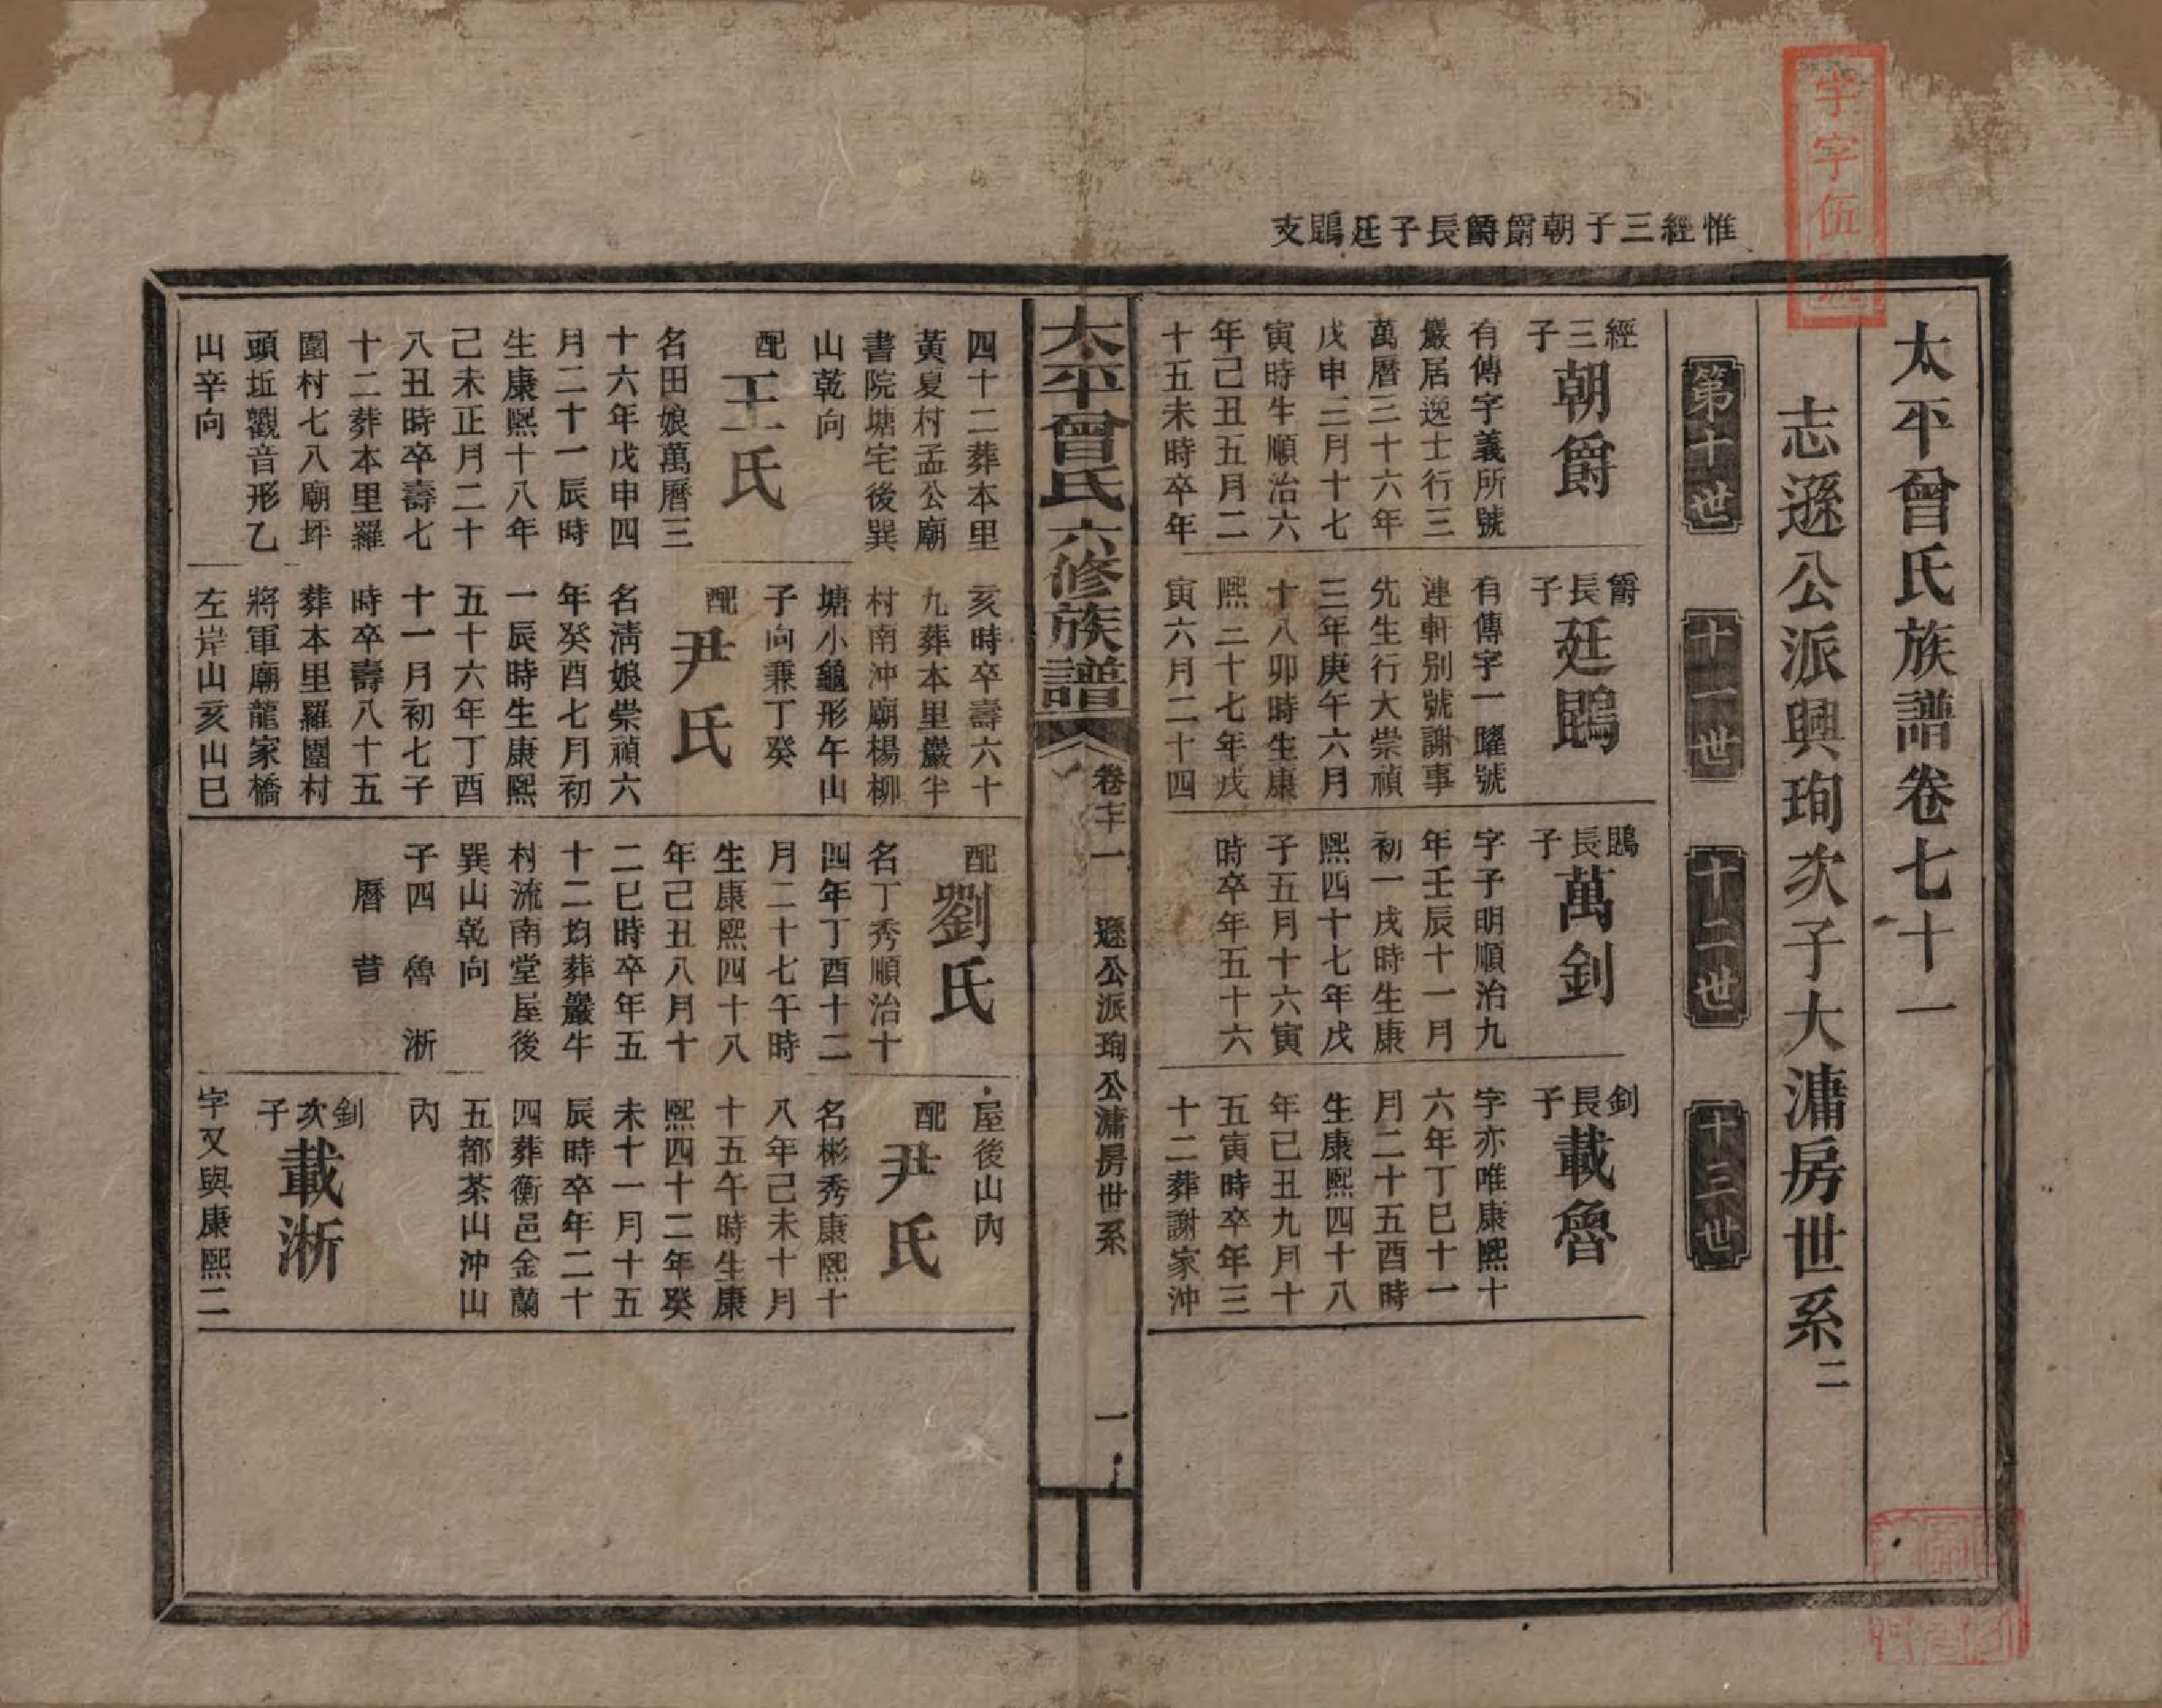 惟經三子朝爵爵長子廷鵾支
孛字伍號
太平曾氏族譜卷七十一
志遜公派興珣次子大滽房世系二
第十世
十一世
十二世
十三世
經三子朝爵
有傳字義所號
巖居逸士行三
萬曆三十六年
戊申三月十七
寅時生順治六
年己丑五月二
十五未時卒年
爵長子廷鵾
有傳字一躍號
連軒別號謝事
先生行大崇禎
三年庚午六月
十八卯時生康
熙二十七年戊
寅六月二十四
鵾長子萬釗
字子明順治九
年壬辰十一月
初一戌時生康
熙四十七年戊
子五月十六寅
時卒年五十六
釗長子載魯
字亦唯康熙十
六年丁巳十一
月二十五酉時
生康熙四十八
年己丑九月十
五寅時卒年三
十二葬謝家沖
太平曾氏六修族譜
卷七十一
遜公派珣公滽房世系
一
四十二葬本里
黃夏村孟公廟
書院塘宅後巽
山乾向
配王氏
名田娘萬曆三
十六年戊申四
月二十一辰時
生康熙十八年
己未正月二十
八丑時卒壽七
十二葬本里羅
圍村七八廟坪
頭坵觀音形乙
山辛向
亥時卒壽六十
九葬本里巖半
村南沖廟楊柳
塘小龜形午山
子向兼丁癸
配尹氏
名淸娘崇禎六
年癸酉七月初
一辰時生康熙
五十六年丁酉
十一月初七子
時卒壽八十五
葬本里羅圍村
將軍廟龍家橋
左岸山亥山巳
配劉氏
名丁秀順治十
四年丁酉十二
月二十七午時
生康熙四十八
年己丑八月十
二巳時卒年五
十二均葬巖牛
村流南堂屋後
巽山乾向
子四 魯 淅
曆 昔
屋後山內
配尹氏
名彬秀康熙十
八年己未十月
十五午時生康
熙四十二年癸
未十一月十五
辰時卒年二十
四葬衡邑金蘭
五都茶山沖山
內
釗次子載淅
字又與康熙二